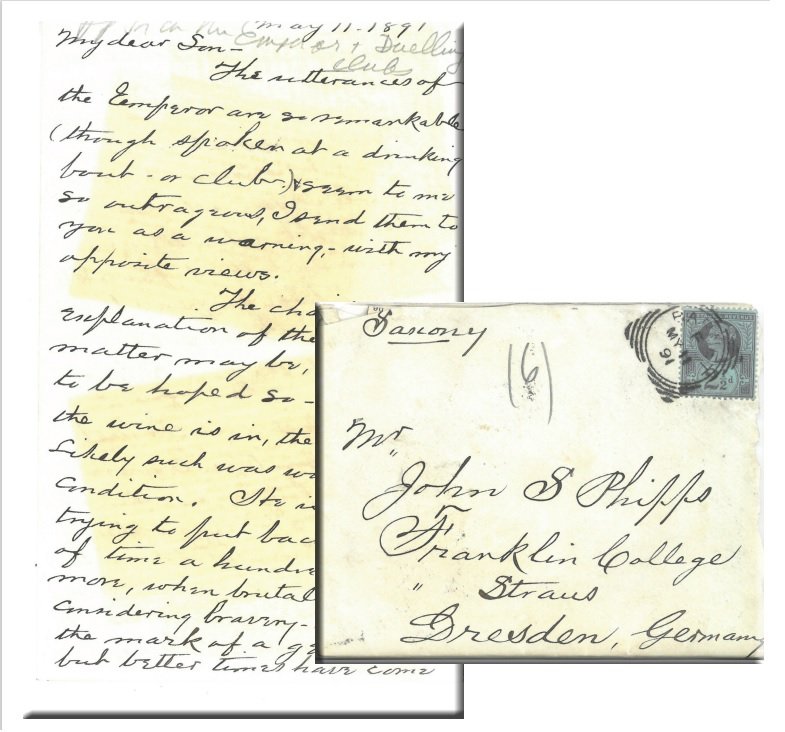 May 11-1891
Emperor & Duelling
clubs
My dear Son-
The utterances of
the Emperor are so remarkable
(though spoken at a drinking
bout - or club.) & seem to me
so outrageous, I send them to
you as a warning, - with my
opposite views.
The
explanation of the
matter may be,
to be hoped so -
the wine is in, the
Likely such was
condition. He
trying to put
of time a
more, when brutal
considering bravery-
the mark of a
but better times have come
Saxony
(6)
MY
91
REVENUE
2½d
Mr
John S Phipps
Franklin College
" Straus
Dresden, Germany